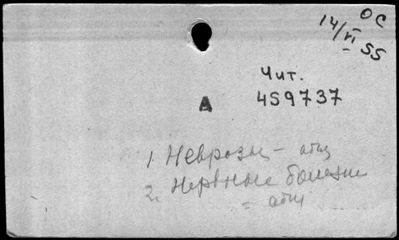 ОС
14/VI 55
Чит.
459737
А
1. Неврозы – общ
2. Нервные болезни
= общ